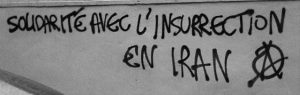 SOLIDARITÉ AVEC L'INSURRECTION
EN IRAN Ⓐ